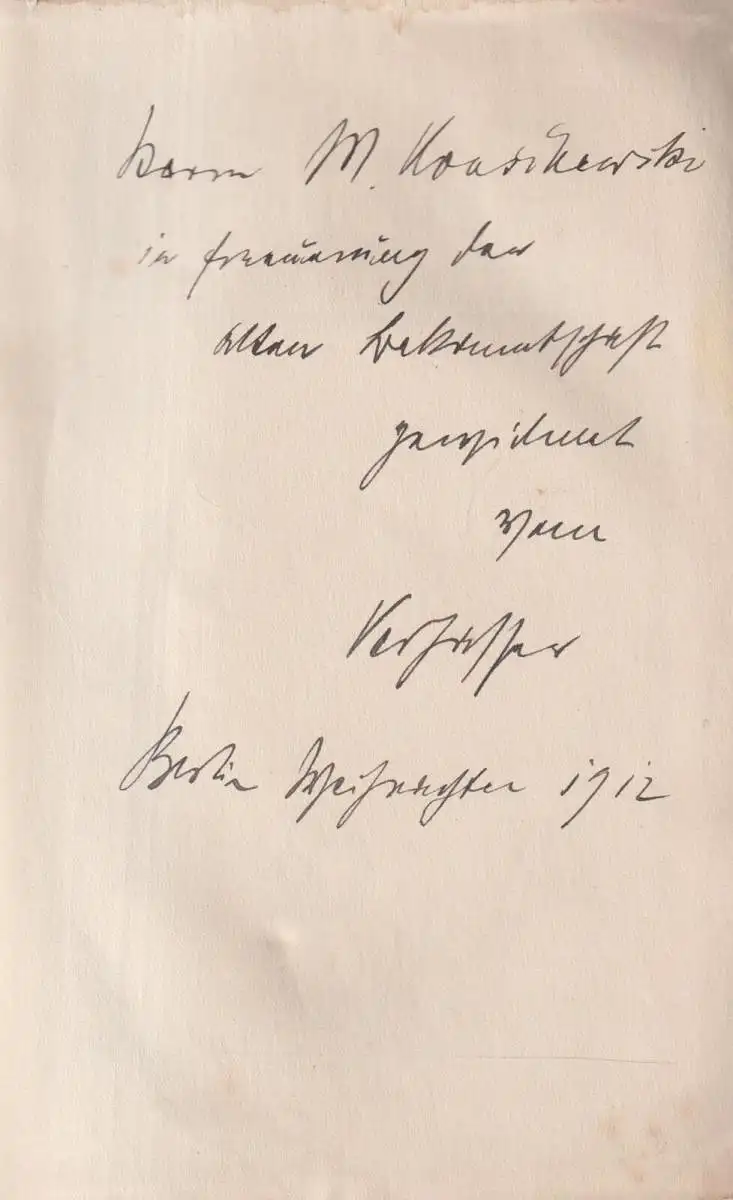 Herrn M.
in Erneuerung der
alten Bekanntschaft
gewidmet
vom
Verfasser
Berlin Weihnachten 1912